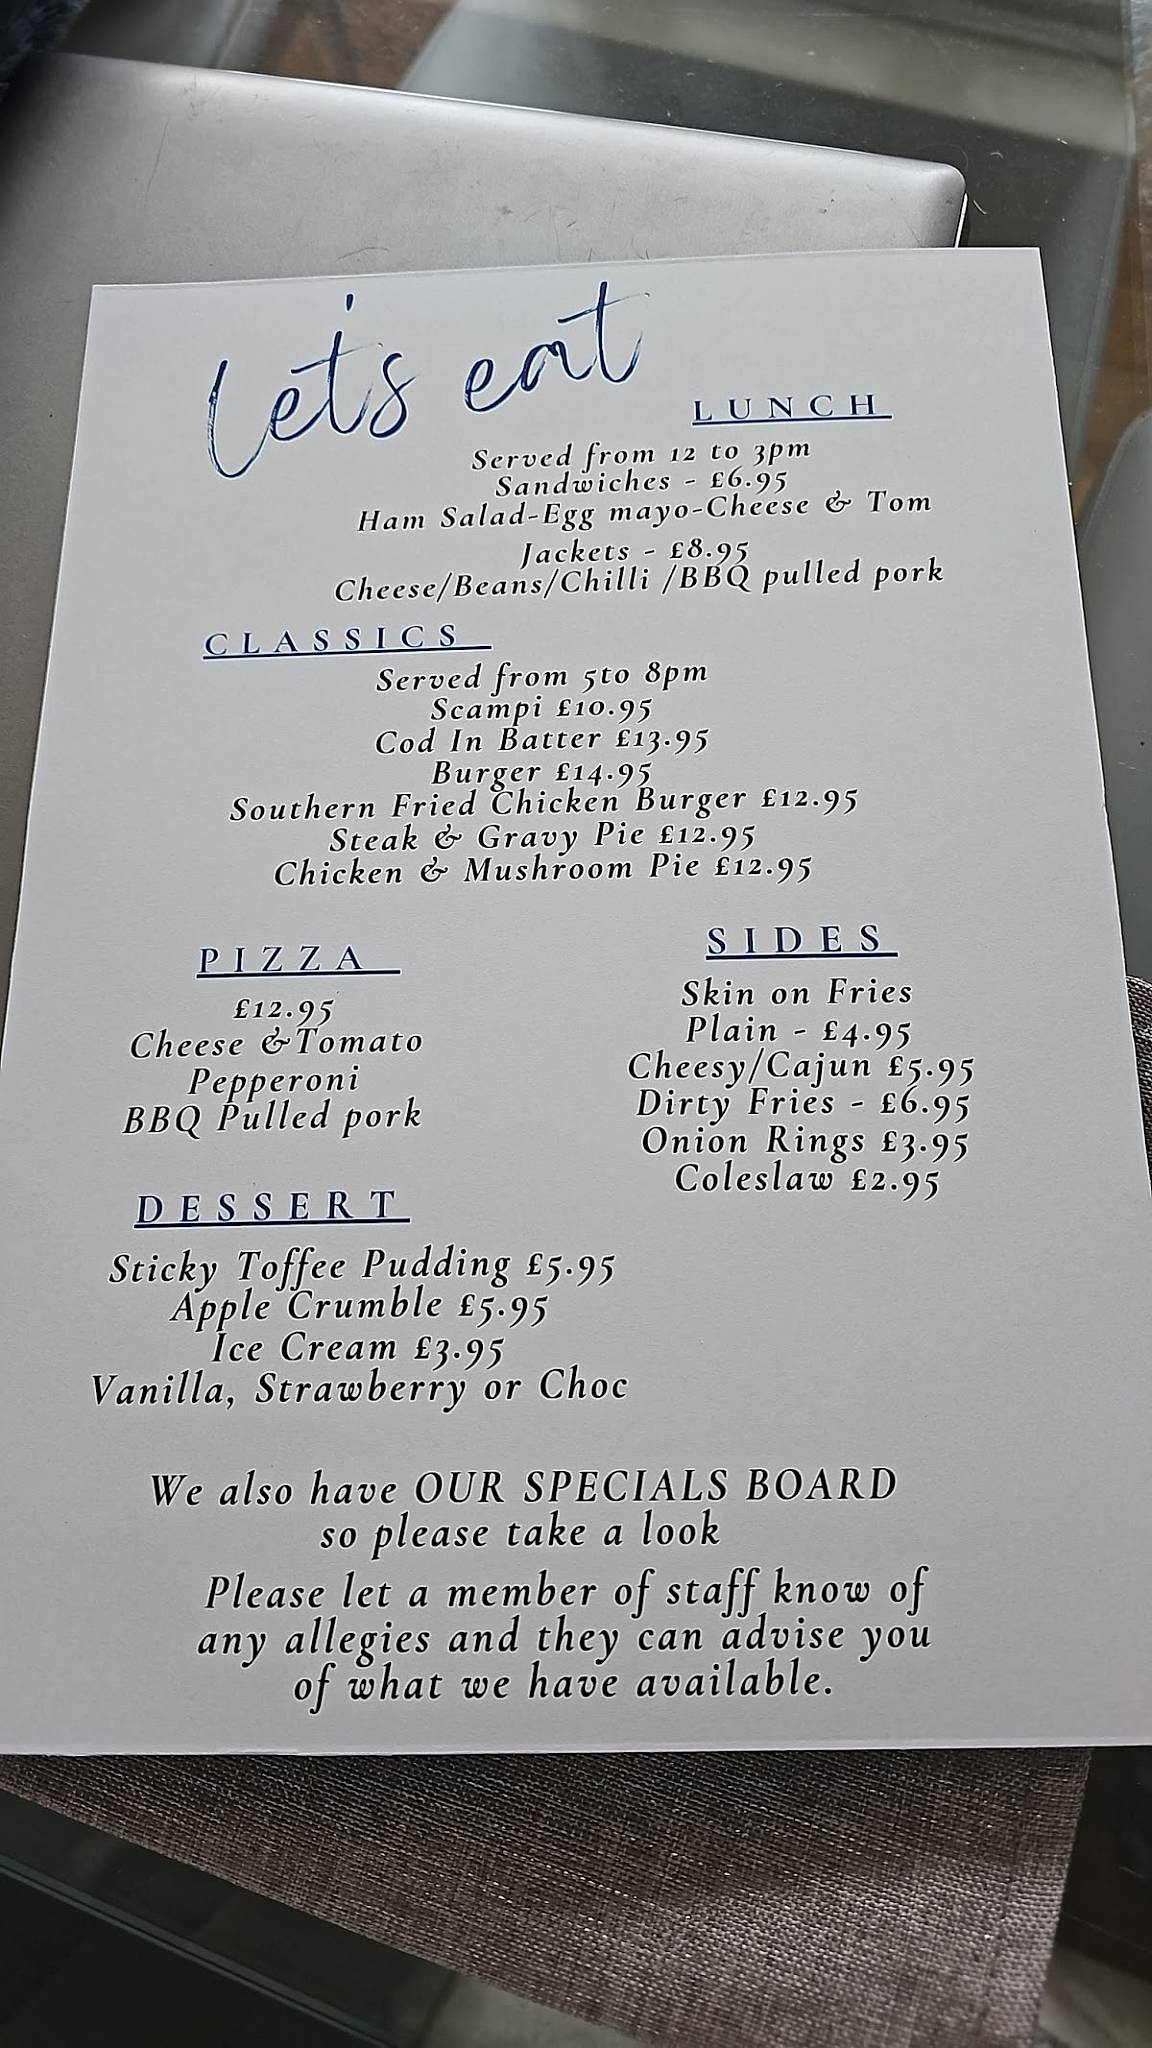 Let's eat
LUNCH
Served from 12 to 3pm
Sandwiches - £6.95
Ham Salad-Egg mayo-Cheese & Tom
Jackets - £8.95
Cheese/Beans/Chilli /BBQ pulled pork
CLASSICS
Served from 5to 8pm
Scampi £10.95
Cod In Batter £13.95
Burger £14.95
Southern Fried Chicken Burger £12.95
Steak & Gravy Pie £12.95
Chicken & Mushroom Pie £12.95
PIZZA
£12.95
Cheese &Tomato
Pepperoni
BBQ Pulled pork
SIDES
Skin on Fries
Plain - £4.95
Cheesy/Cajun £5.95
Dirty Fries - £6.95
Onion Rings £3.95
Coleslaw £2.95
DESSERT
Sticky Toffee Pudding £5.95
Apple Crumble £5.95
Ice Cream £3.95
Vanilla, Strawberry or Choc
We also have OUR SPECIALS BOARD
so please take a look
Please let a member of staff know of
any allegies and they can advise you
of what we have available.